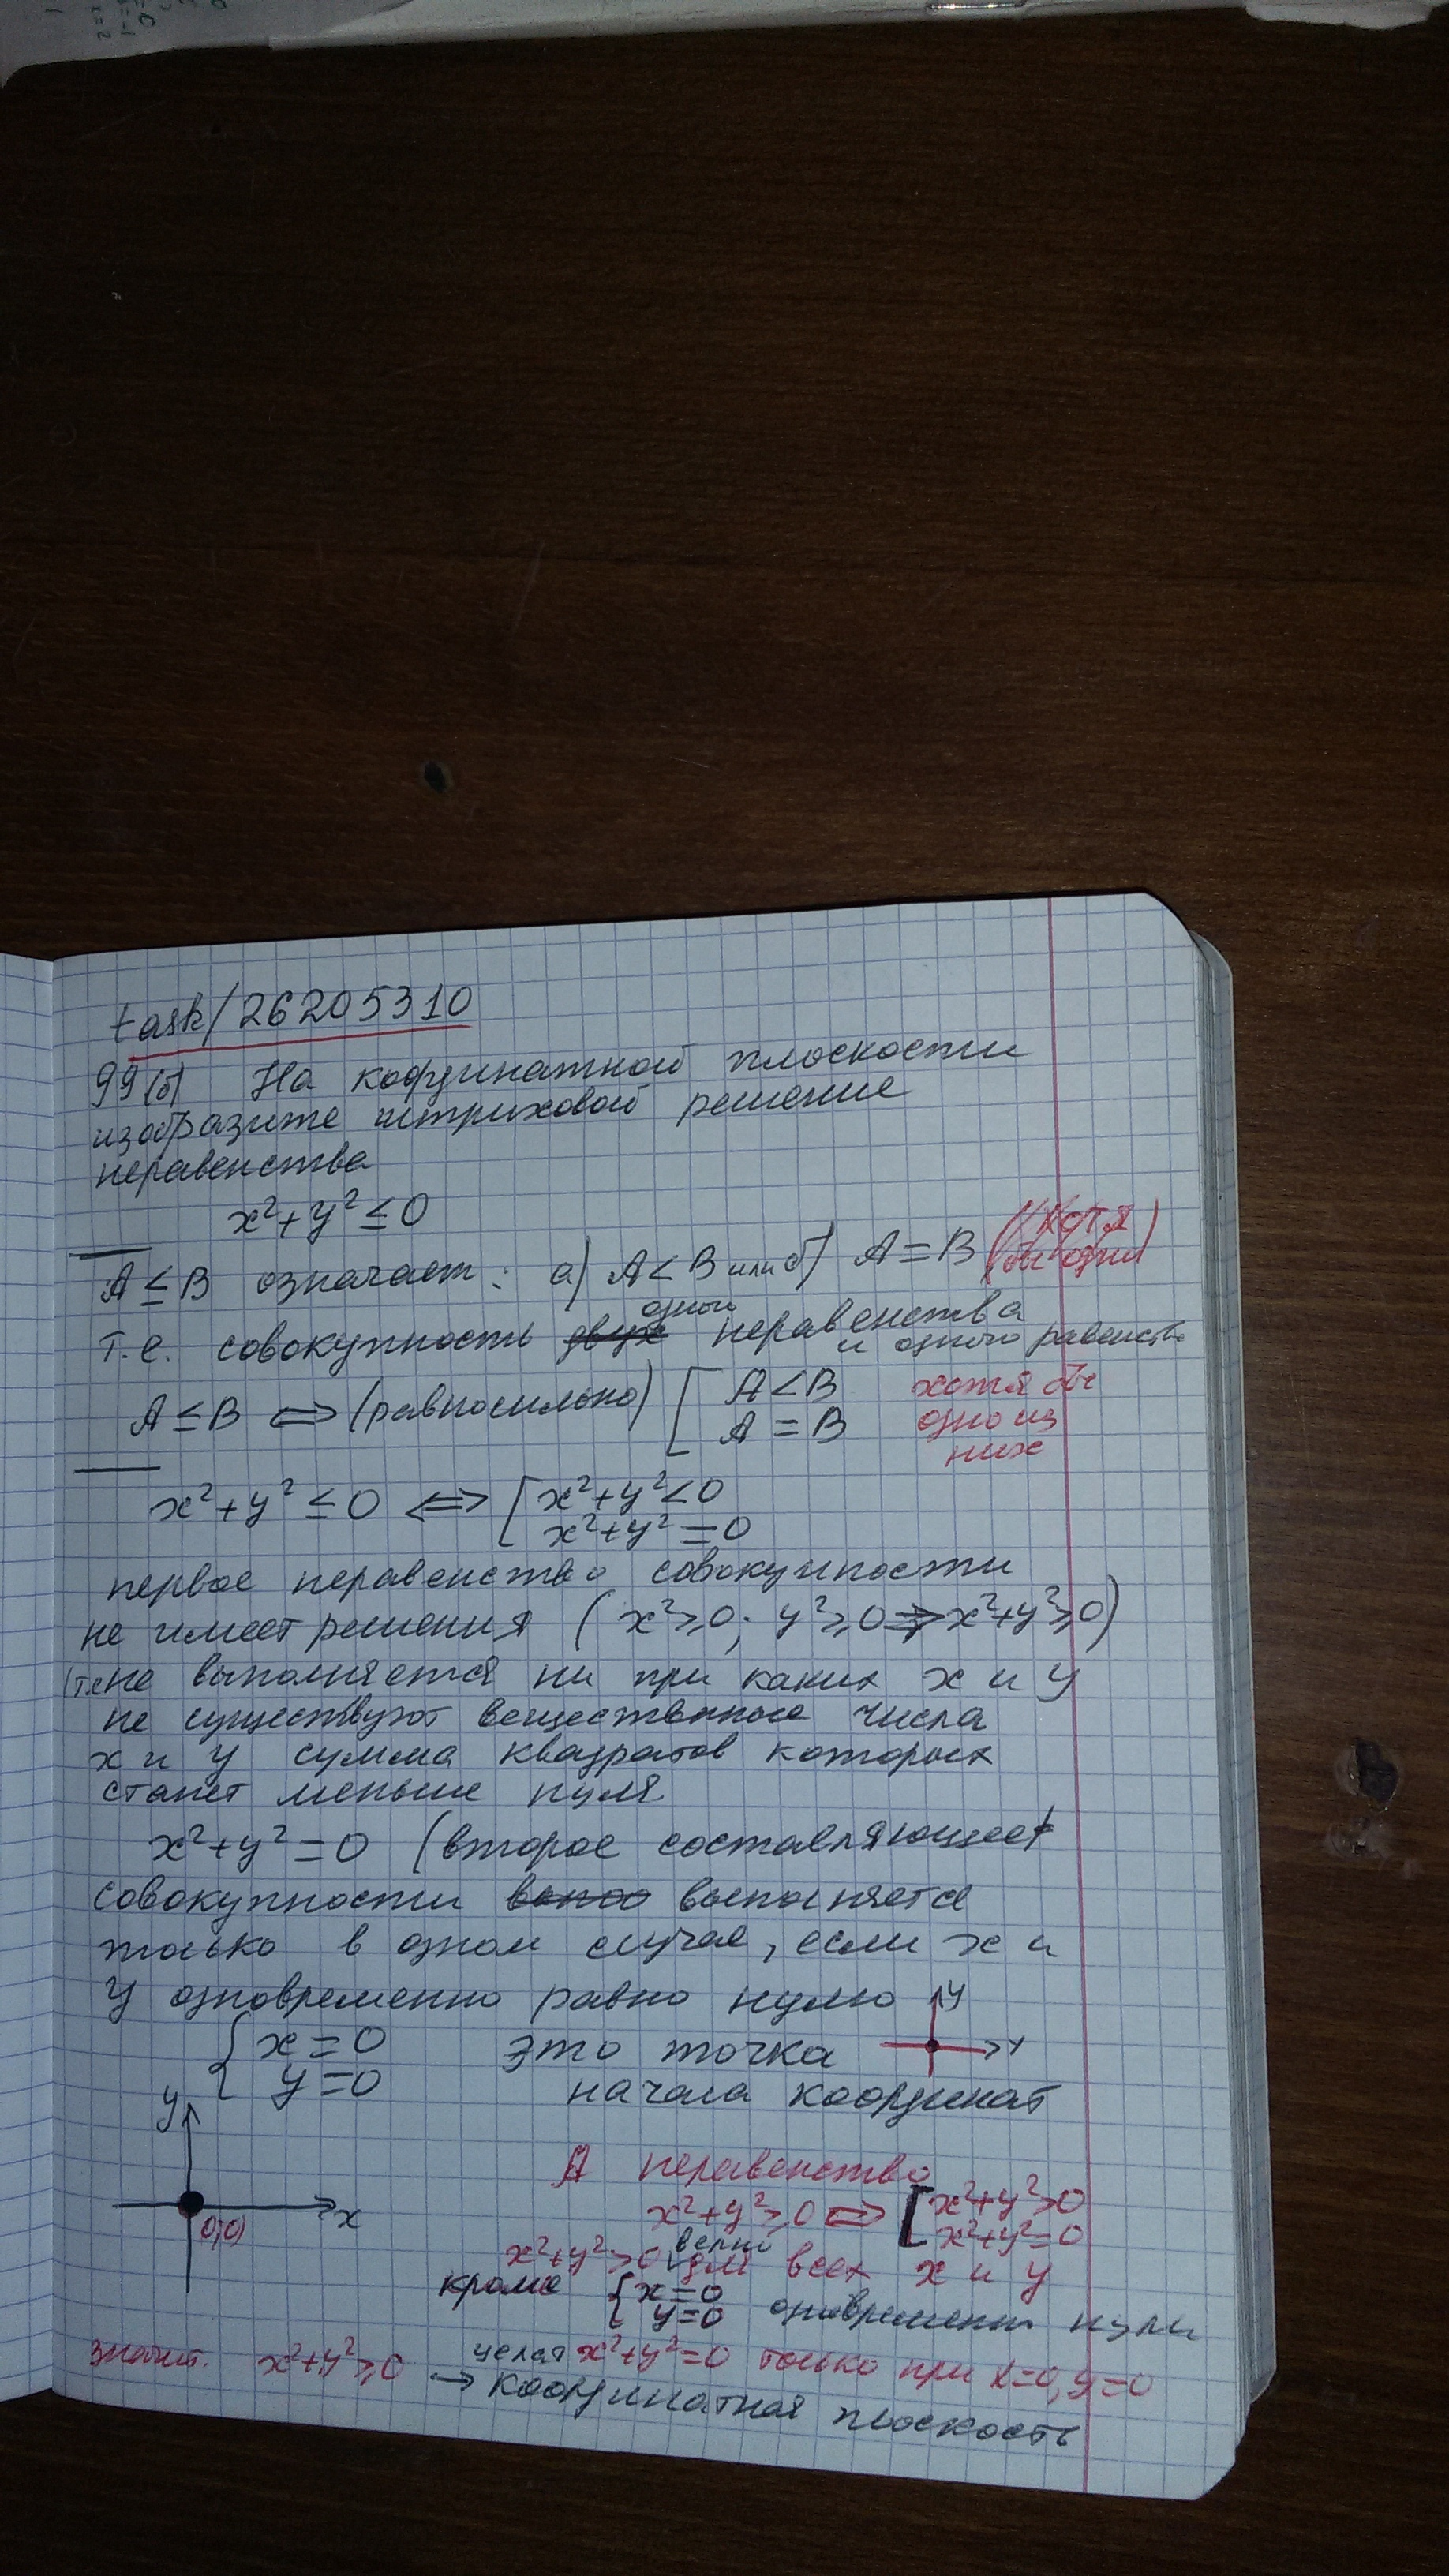 task/26205310
99(б) На координатной плоскости
изобразите штриховой решение
неравенства
x²+y²≤0
A≤B означает: а) A<B или б) A=B (хотя бы один)
одного
т.е. совокупность двух неравенства
и одного равенств
A≤B ⇔ (равносильно) [ A<B хотя бы
A=B одно из
них
x²+y²≤0 ⇔ [ x²+y²<0
x²+y²=0
первое неравенство совокупности
не имеет решения (x²≥0; y²≥0 ⇒ x²+y²≥0)
(т.е. не выполняется ни при каких x и y
не существуют вещественные числа
x и y сумма квадратов которых
станет меньше нуля
x²+y²=0 (второе составляющее)
совокупности выполняется
только в одном случае, если x и
y одновременно равно нулю y
{ x=0 это точка
y=0 начала координат
y
x
0;0)
А неравенство
x²+y²≥0 ⇔ [ x²+y²>0
x²+y²=0
x²+y²>0 верно для всех x и y
кроме { x=0
y=0 одновременно нули
значит. x²+y²≥0 целая x²+y²=0 только при x=0, y=0
→ координатная плоскость